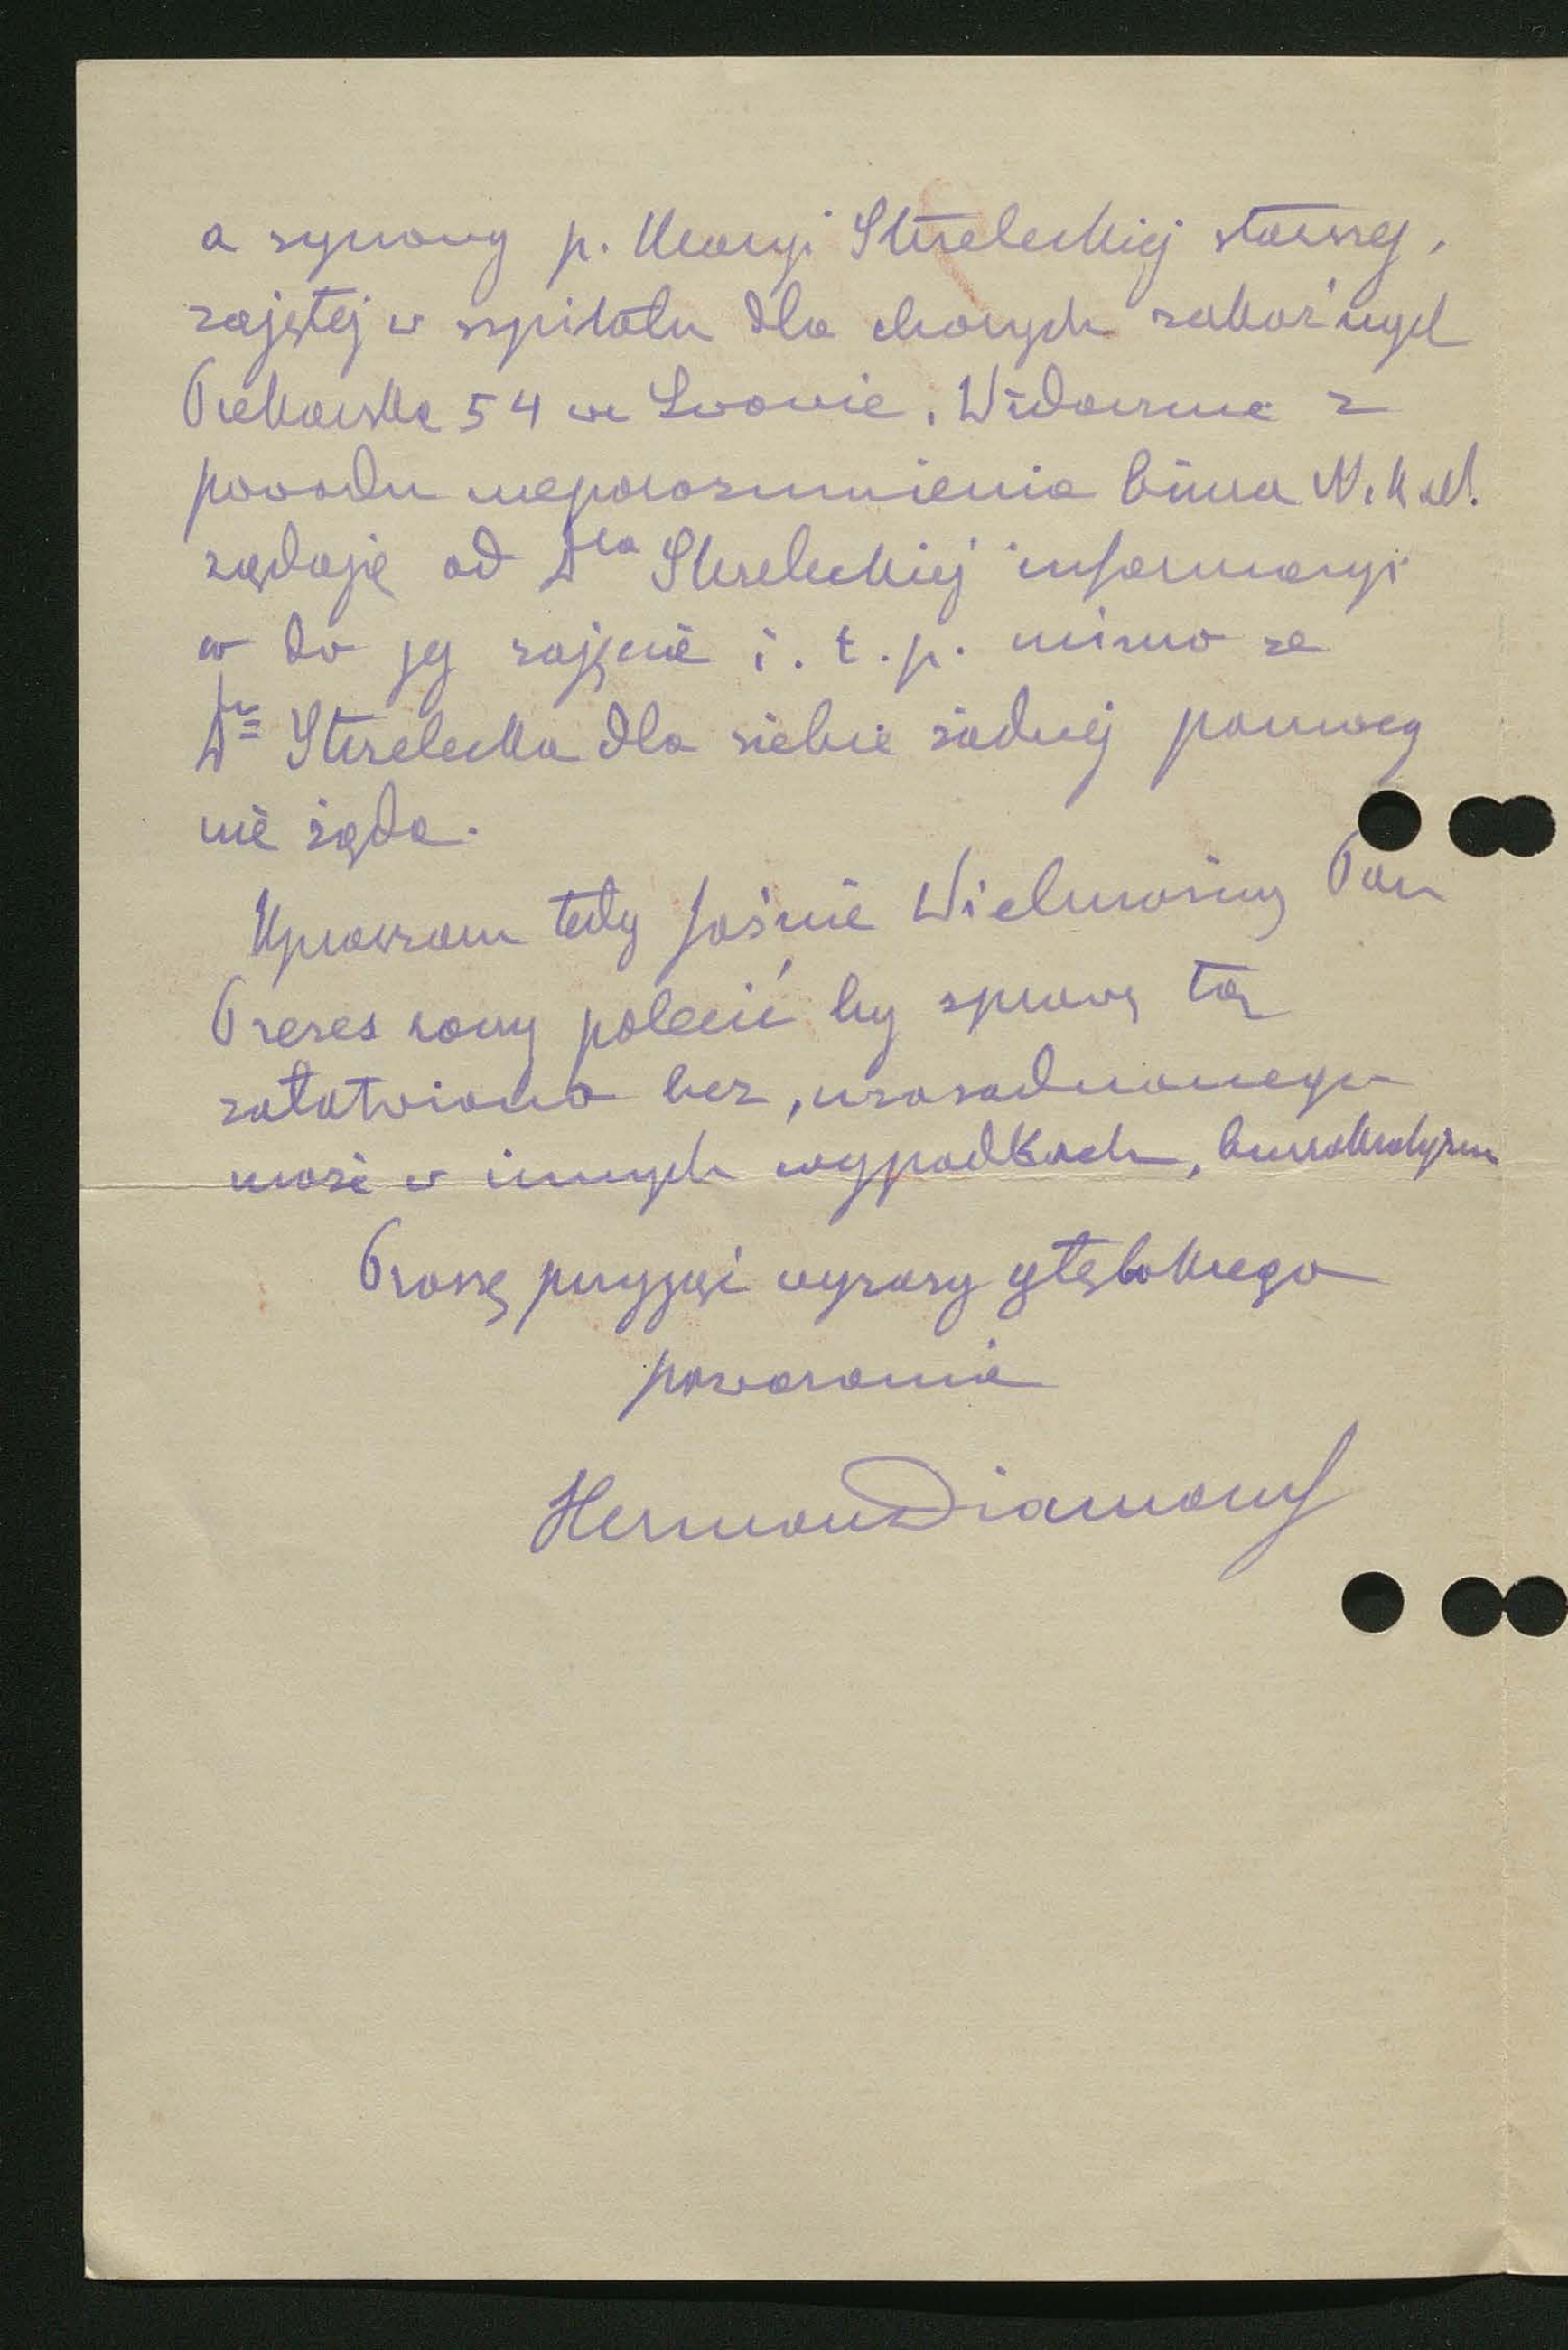 a synowy p. Maryi Strzeleckiej starszej,
zajętej w szpitalu dla chorych zakaźnych
Piekarska 54 we Lwowie. Widocznie z
powodu nieporozumienia biura N.K.N.
żądają od Dra Strzeleckiej informacyi
co do jej zajęcia i. t. p. mimo że
Dr Strzelecka dla siebie żadnej pomocy
nie żąda.
Upraszam tedy Jaśnie Wielmożny Pan
Prezes raczy polecić by sprawę tą
załatwiono bez, uzasadnionego
może w innych wypadkach, biurokratyzmu
Proszę przyjąć wyrazy głębokiego
poważania
Herman Diamand